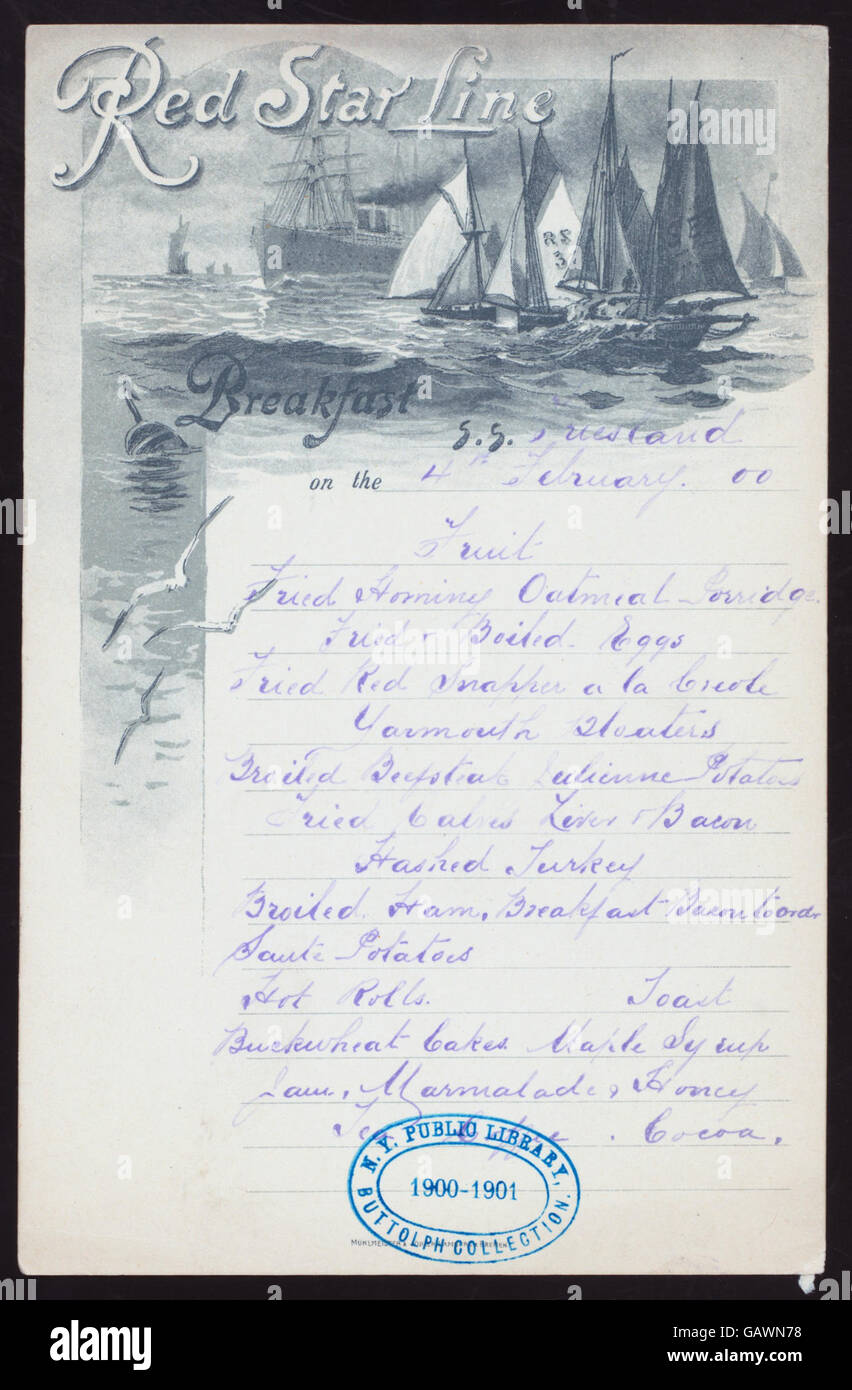 Red Star Line
R S
Breakfast
S.S. Friesland
on the 4th February. 00
Fruit
Fried Hominy Oatmeal Porridge
Fried & Boiled Eggs
Fried Red Snapper a la Creole
Yarmouth Bloaters
Broiled Beefsteak Julienne Potatoes
Fried Calves Liver & Bacon
Hashed Turkey
Broiled Ham, Breakfast Bacon to order
Sauté Potatoes
Hot Rolls. Toast
Buckwheat Cakes Maple Syrup
Jam, Marmalade & Honey
Tea Coffee. Cocoa.
N.Y. PUBLIC LIBRARY,
1900-1901
BUTTOLPH COLLECTION.
alamy stock photo
GAWN78
www.alamy.com